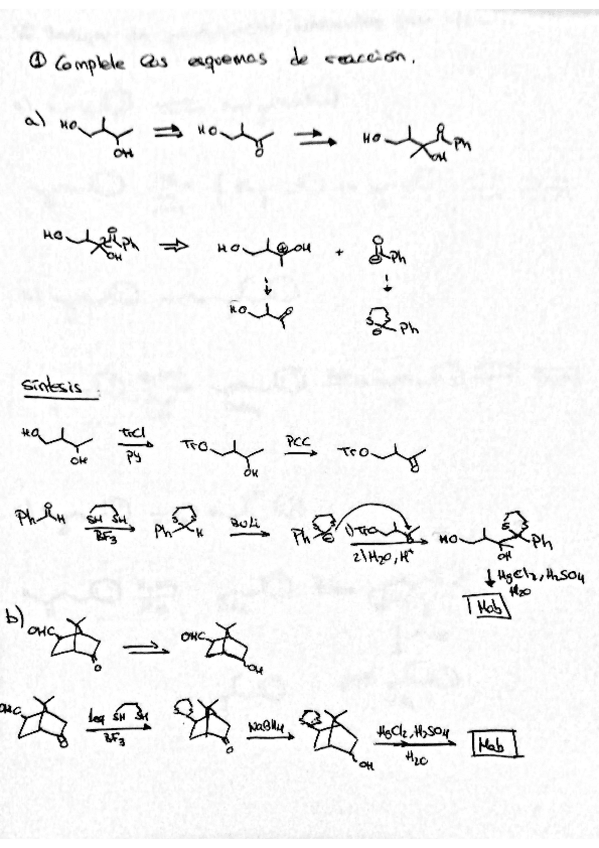 ① Complete los esquemas de reacción.
a) HO OH HO O HO O Ph OH
HO O Ph OH HO ⊕ OH + O ⊖ Ph
HO O S ⊖ Ph
Síntesis
HO OH TrCl Py TrO OH PCC TrO O
Ph O H SH SH BF3 Ph S H BuLi Ph S ⊖ 1) TrO O 2) H2O, H+ HO S OH Ph
HgCl2, H2SO4
H2O
Mab
b) OHC O OHC OH
OHC O 1eq SH SH BF3 O NaBH4 OH HgCl2, H2SO4 H2O Mab